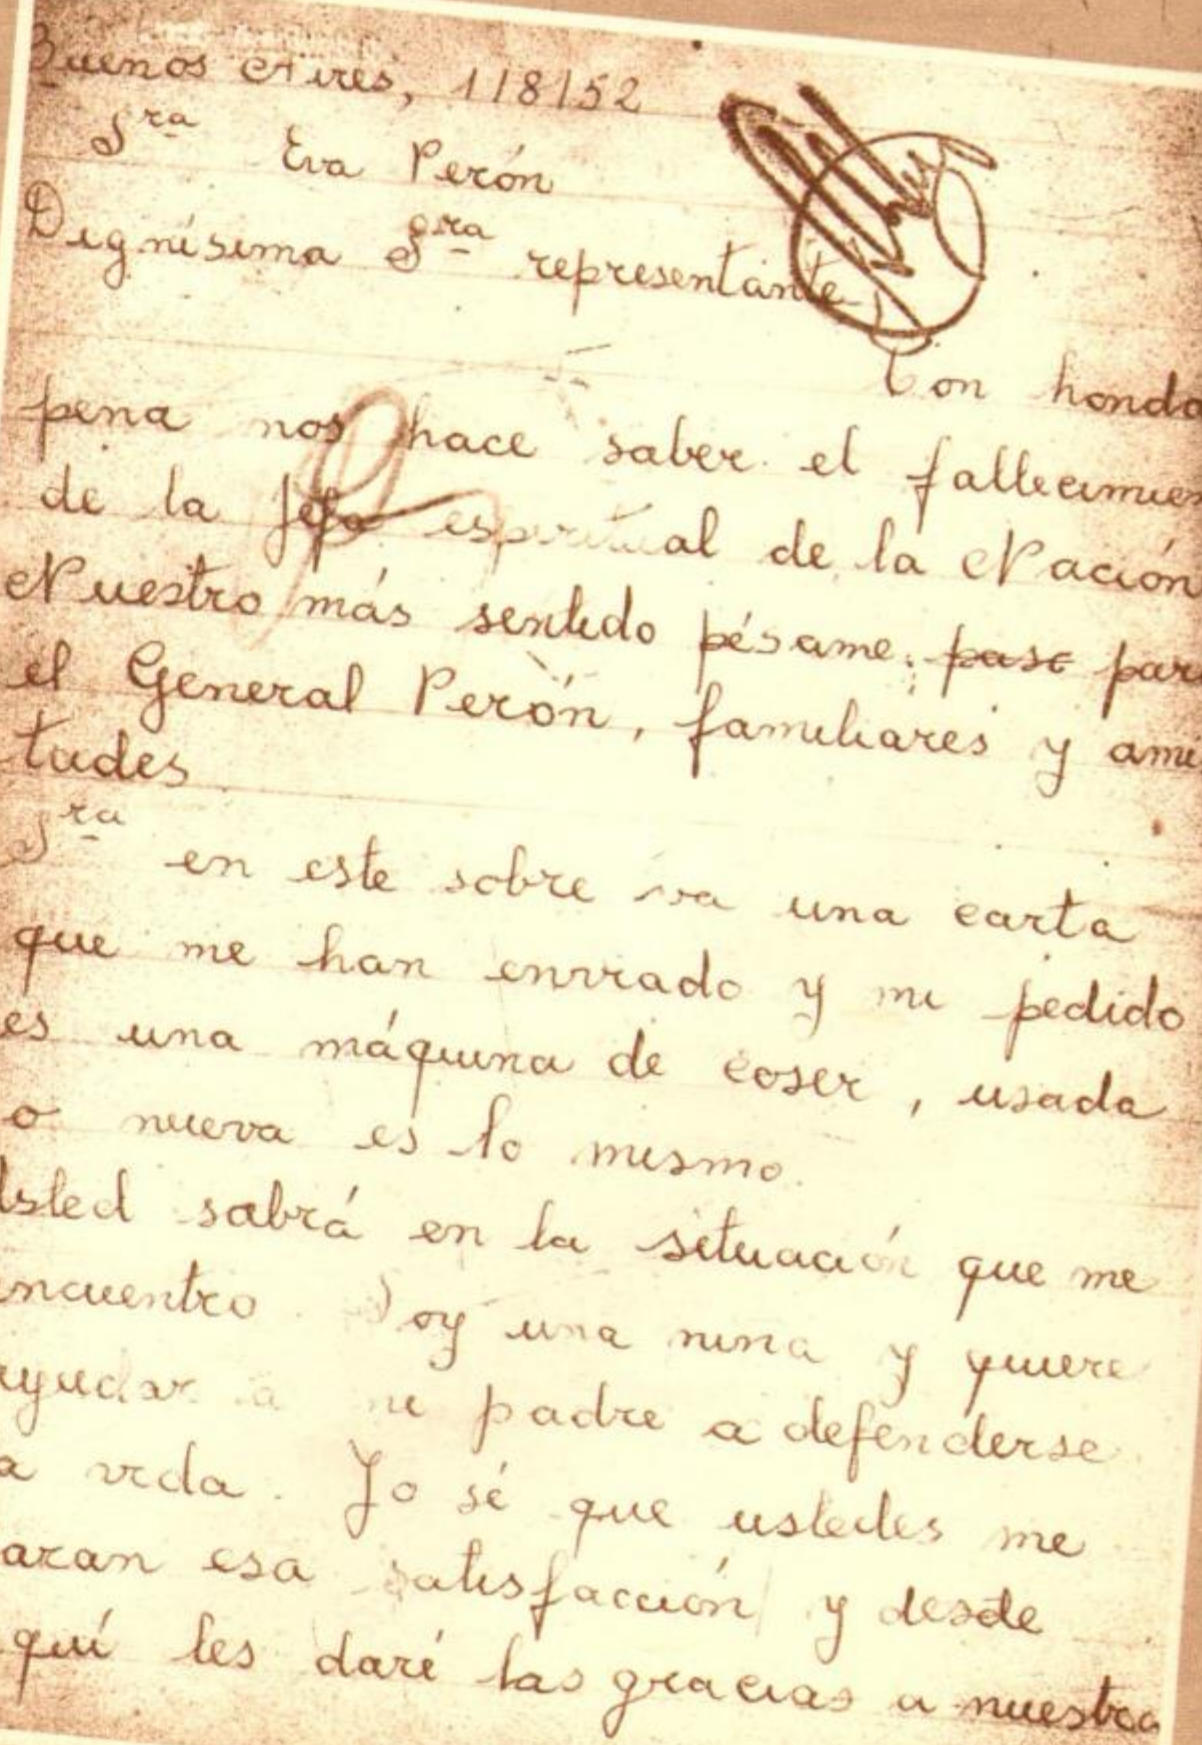 Buenos Aires, 1/8/52
Sra Eva Perón
Dignísima Sra representante
Con honda
pena nos hace saber el fallecimien
de la Jefa espiritual de la Nación
Nuestro más sentido pésame. pase par
el General Perón, familiares y ami
tades
Sra en este sobre va una carta
que me han enviado y mi pedido
es una máquina de coser, usada
o nueva es lo mismo.
Usted sabrá en la situación que me
ncuentro. Soy una nina y quiere
ayudar a mi padre a defenderse
a vida. Yo sé que ustedes me
aran esa satisfacción y desde
quí les daré las gracias a nuestra